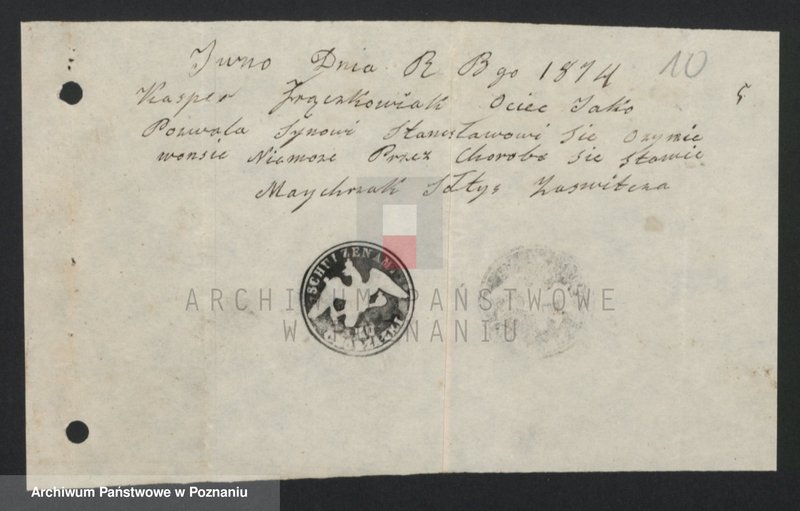 Iwno Dnia R B go 1874
10
5
Kasper Frąckowiak Ociec Jako
Pozwala Synowi Stanisławowi Sie Ozynic
wonsie Niemoze Przez Chorobe Sie Stawic
Maychrzak Sołtys Zaswitcza
SCHULZENAMT
ARCHIWUM PAŃSTWOWE
W POZNANIU
Archiwum Państwowe w Poznaniu